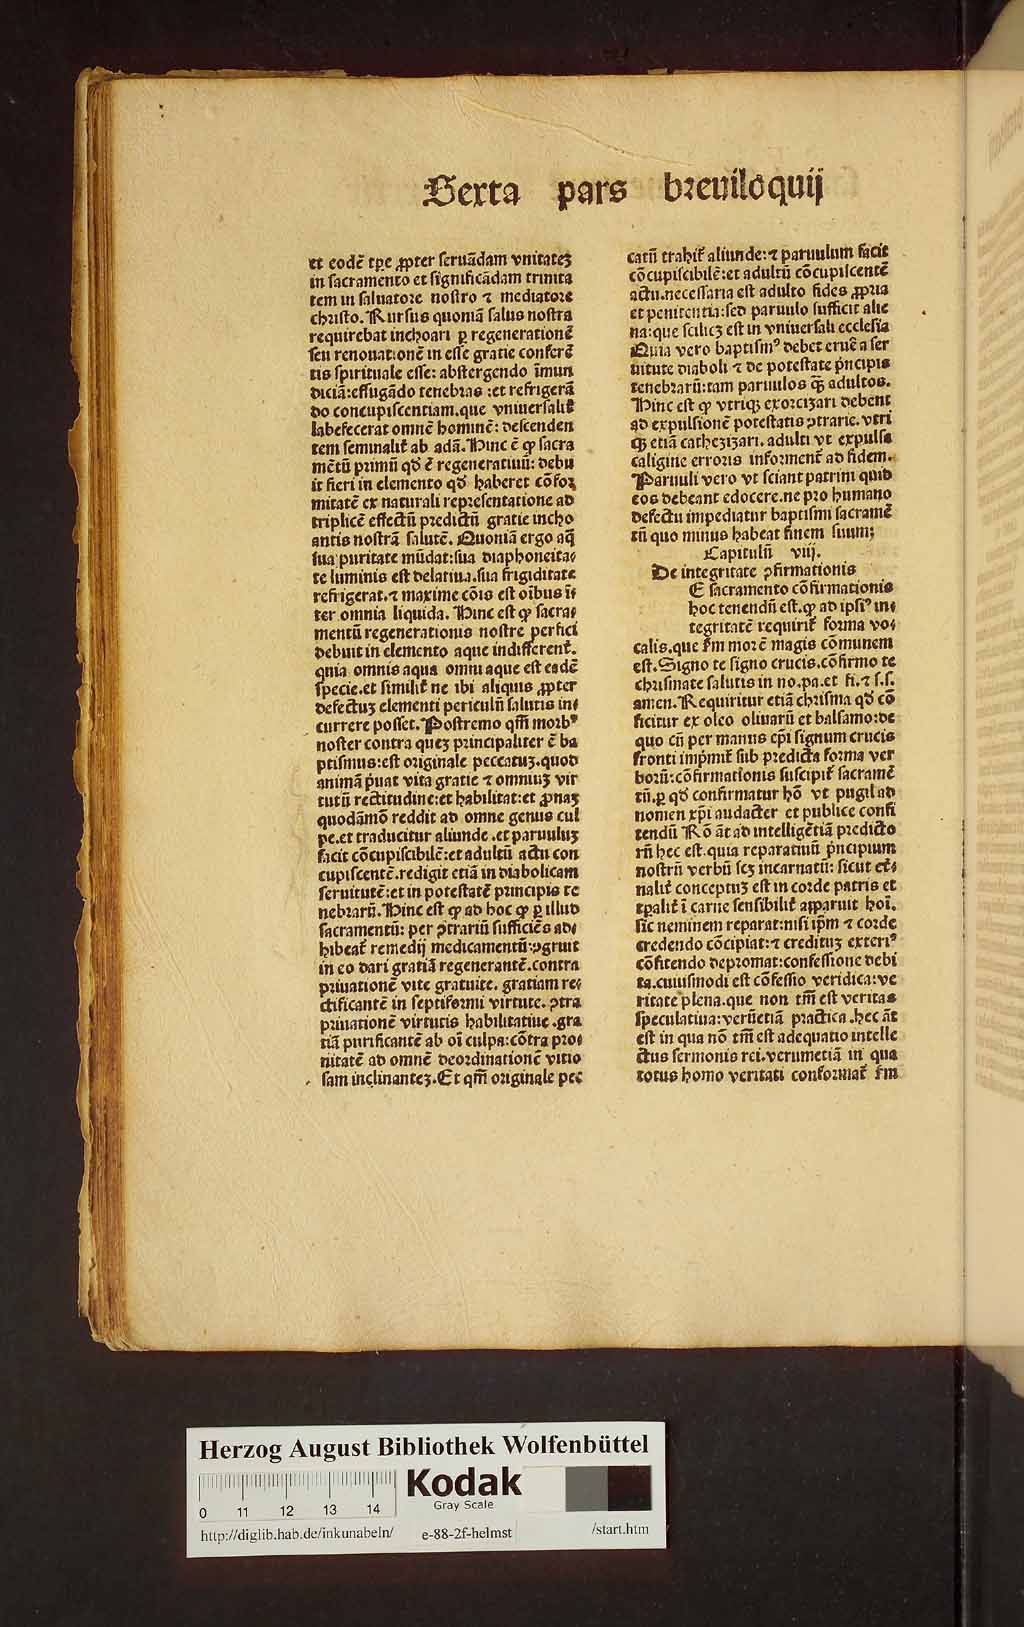 Sexta pars breuiloquij
et eodē tꝑe ꝓpter seruādam vnitateꝫ
in sacramento et significādam trinita
tem in saluatore nostro ⁊ mediatore
christo. Rursus quoniā salus nostra
requirebat inchoari ꝑ regenerationē
seu renouationē in esse gratie conferē
tis spirituale esse: abstergendo īmun
diciā: effugādo tenebras : et refrigerā
do concupiscentiam. que vniuersalit̄
labefecerat omnē hominē: descenden
tem seminalit̄ ab adā. Hinc ē ꝙ sacra
mētū primū qd̄ ē regeneratiuū: debu
it fieri in elemento qd̄ haberet cōfoꝛ
mitatē ex naturali repꝛesentatione ad
triplicē effectū pꝛedictū gratie incho
antis nostrā salutē. Quoniā ergo aq̄
sua puritate mūdat: sua diaphoneita⸗
te luminis est delatiua. sua frigiditate
refrigerat. ⁊ maxime cōis est oībus ī⸗
ter omnia liquida. Hinc est ꝙ sacra⸗
mentū regenerationis nostre perfici
debuit in elemento aque indifferent̄.
quia omnis aqua omni aque est eadē
specie. et similit̄ ne ibi aliquis ꝓpter
defectuꝫ elementi periculū salutis in⸗
currere posset. Postremo qm̄ moꝛbꝰ
noster contra queꝫ pꝛincipaliter ē ba
ptismus: est oꝛiginale peccatuꝫ. quod
animā p̄uat vita gratie ⁊ omniuꝫ vir
tutū rectitudine: et habilitat: et ꝓnaꝫ
quodāmō reddit ad omne genus cul
pe. et traducitur aliunde . et paruuluꝫ
facit cōcupiscibilē: et adultū actu con
cupiscentē. redigit etiā in diabolicam
seruitutē: et in potestatē pꝛincipis te
nebꝛarū. Hinc est ꝙ ad hoc ꝙ ꝑ illud
sacramentū: per ꝯtrariū sufficiēs ad⸗
hibeat̄ remedij medicamentū: ꝯgruit
in eo dari gratiā regenerantē. contra
pꝛiuationē vite gratuite. gratiam re⸗
ctificantē in septifoꝛmi virtute. ꝯtra
pꝛiuationē virtutis habilitatiue . gra
tiā purificantē ab oī culpa: cōtra pꝛo⸗
nitatē ad omnē deoꝛdinationē vitio
sam inclinanteꝫ. Et qm̄ oꝛiginale pec
catū trahit̄ aliunde: ⁊ paruulum facit
cōcupiscibilē: et adultū cōcupiscentē
actu. necessaria est adulto fides ꝓpꝛia
et penitentia: sed paruulo sufficit alie
na: que scilicꝫ est in vniuersali ecclesia
Quia vero baptismꝰ debet eruē a ser
uitute diaboli ⁊ de potestate p̄ncipis
tenebꝛarū: tam paruulos qꝫ̄ adultos.
Hinc est ꝙ vtriqꝫ exoꝛcizari debent
ad expulsionē potestatis ꝯtrarie. vtri
qꝫ etiā cathezizari. adulti vt expulsa
caligine erroꝛis infoꝛment̄ ad fidem.
Paruuli vero vt sciant patrini quid
eos debeant edocere. ne pꝛo humano
defectu impediatur baptismi sacramē
tū quo minus habeat finem suum;
Capitulū viij.
De integritate ꝯfirmationis
E sacramento cōfirmationis
hoc tenendū est. ꝙ ad ipsiꝰ in⸗
tegritatē requirit̄ foꝛma vo⸗
calis. que fm̄ moꝛē magis cōmunem
est. Signo te signo crucis. cōfirmo te
chꝛismate salutis in no. pa. et fi. ⁊ s. s.
amen. Requiritur etiā chꝛisma qd̄ cō
ficitur ex oleo oliuarū et balsamo: de
quo cū per manus ep̄i signum crucis
fronti imp̄mit̄ sub pꝛedicta foꝛma ver
boꝛū: cōfirmationis suscipit̄ sacramē
tū. ꝑ qd̄ confirmatur hō vt pugil ad
nomen xp̄i audacter et publice confi
tendū Rō āt ad intelligētiā pꝛedicto
rū hec est. quia reparatiuū pꝛincipium
nostrū verbū scꝫ incarnatū: sicut et⸗
nalit̄ conceptuꝫ est in coꝛde patris et
tp̄alit̄ ī carne sensibilit̄ apparuit hoī.
sic neminem reparat: nisi ip̄m ⁊ coꝛde
credendo cōcipiat: ⁊ credituꝫ exteriꝰ
cōfitendo depꝛomat: confessione debi
ta. cuiusmodi est cōfessio veridica: ve
ritate plena. que non tm̄ est veritas
speculatiua: verūetiā practica . hec āt
est in qua nō tm̄ est adequatio intelle
ctus sermonis rei. verumetiā in qua
totus homo veritati confoꝛmat̄ fm̄
Herzog August Bibliothek Wolfenbüttel
0 11 12 13 14
Kodak
Gray Scale
http://diglib.hab.de/inkunabeln/ e-88-2f-helmst /start.htm